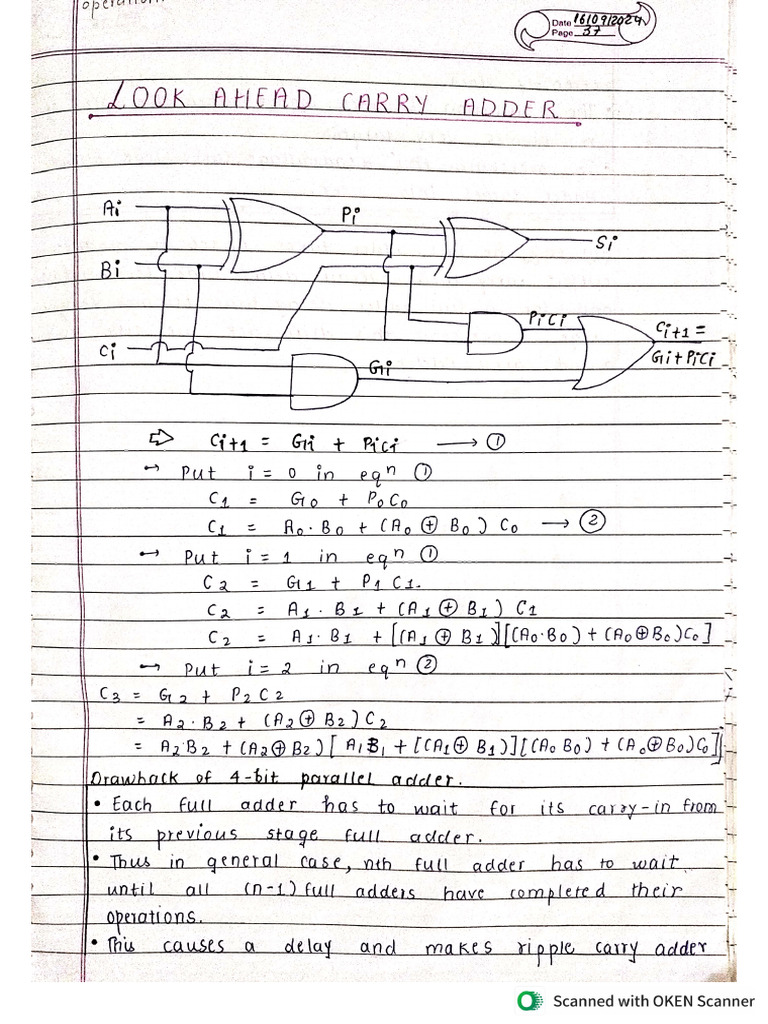 operation.
Date 16/09/2024
Page 37
LOOK AHEAD CARRY ADDER
Ai
Pi
Si
Bi
PiCi
Ci+1 =
Ci
Gi
Gi + PiCi
⇨ Ci+1 = Gi + PiCi → ①
→ Put i = 0 in eqn ①
C1 = G0 + P0C0
C1 = A0 · B0 + (A0 ⊕ B0) C0 → ②
→ Put i = 1 in eqn ①
C2 = G1 + P1 C1.
C2 = A1 · B1 + (A1 ⊕ B1) C1
C2 = A1 · B1 + [(A1 ⊕ B1)][(A0·B0) + (A0⊕B0)C0]
→ Put i = 2 in eqn ②
C3 = G2 + P2 C2
= A2 · B2 + (A2 ⊕ B2) C2
= A2·B2 + (A2⊕B2) [ A1B1 + [(A1⊕B1)][(A0 B0) + (A0⊕B0)C0]]
Drawback of 4-bit parallel adder.
• Each full adder has to wait for its carry-in from
its previous stage full adder.
• Thus in general case, nth full adder has to wait
until all (n-1) full adders have completed their
operations.
• This causes a delay and makes ripple carry adder
Scanned with OKEN Scanner